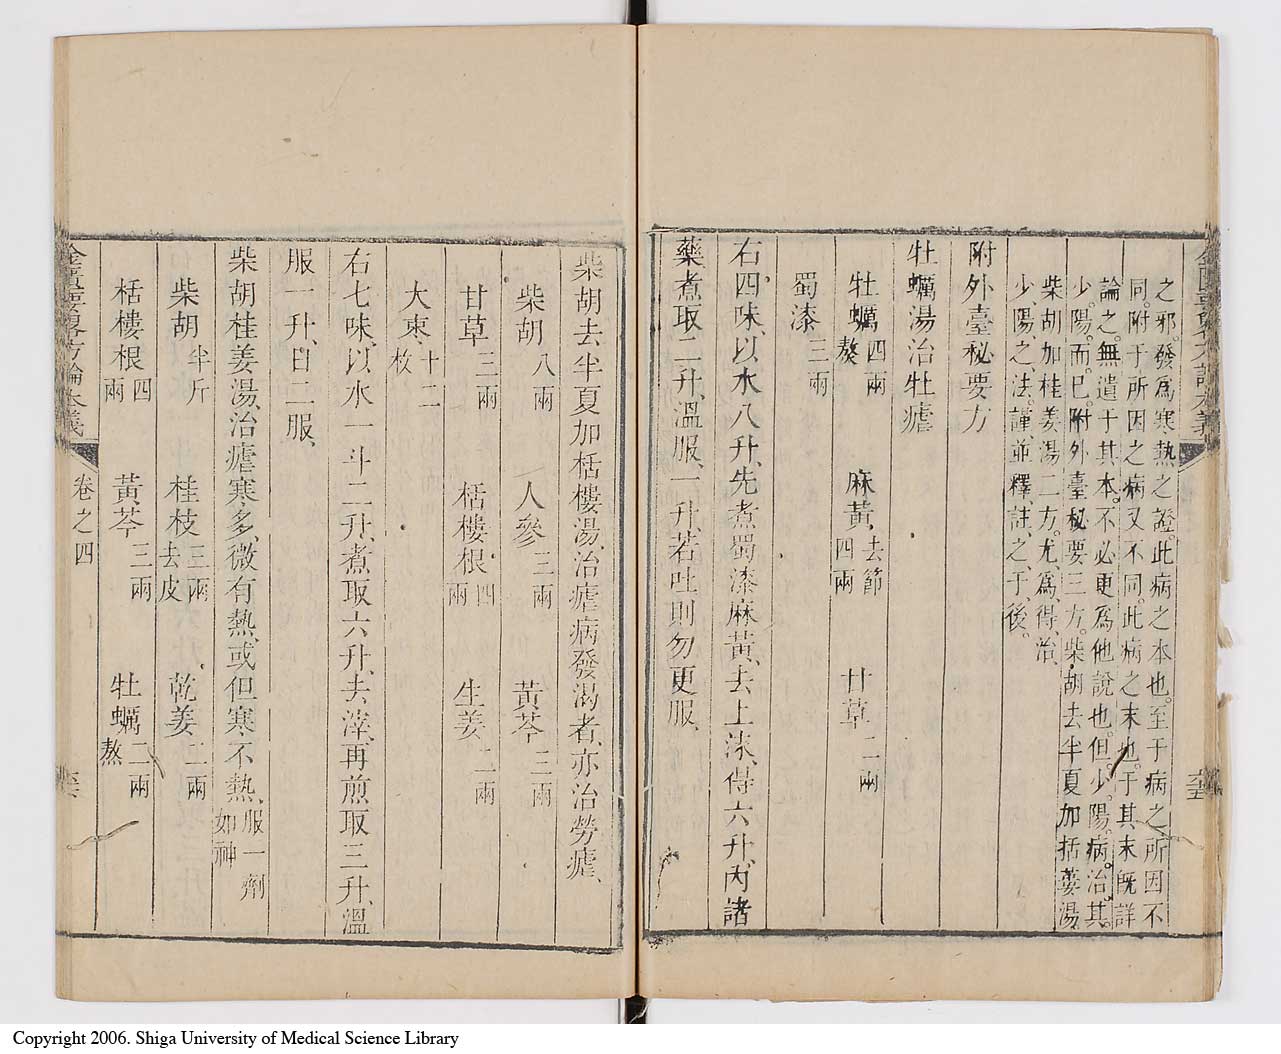 之邪。發爲寒熱之證。此病之本也。至于病之所因不
同。附于所因之病又不同。此病之末也。于其末旣詳
論之。無遺于其本。不必更爲他說也。但少陽病。治其
少陽。而已。附外臺秘要三方。柴胡去半夏加括蔞湯
柴胡加桂姜湯二方。尤爲得治
少陽之法。謹並釋註之于後。
附外臺秘要方
牡蠣湯治牡瘧
牡蠣 四兩熬 麻黃 去節四兩 甘草 二兩
蜀漆 三兩
右四味、以水八升、先煮蜀漆麻黃、去上沫、得六升、內諸
藥、煮取二升、溫服一升、若吐則勿更服、
柴胡去半夏加栝樓湯、治瘧病發渴者、亦治勞瘧、
柴胡 八兩 人參 三兩 黃芩 三兩
甘草 三兩 栝樓根 四兩 生姜 二兩
大棗 十二枚
右七味、以水一斗二升、煮取六升、去滓、再煎取三升、溫
服一升、日二服、
柴胡桂姜湯、治瘧寒多、微有熱、或但寒不熱、服一劑如神
柴胡 半斤 桂枝 三兩去皮 乾姜 二兩
栝樓根 四兩 黃芩 三兩 牡蠣 二兩熬
金匱要畧方論本義 卷之四
Copyright 2006. Shiga University of Medical Science Library